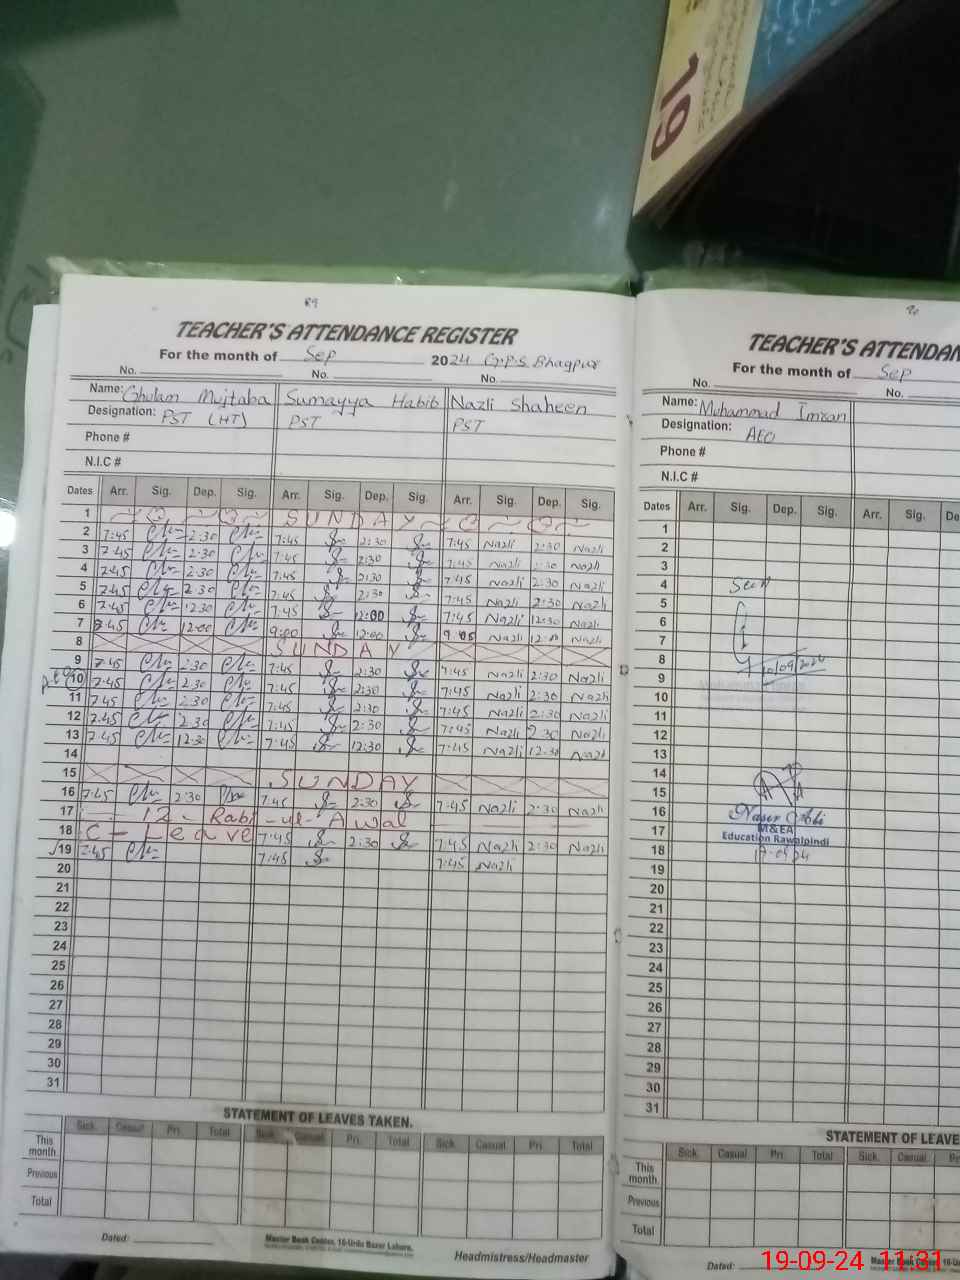 19
89
TEACHER'S ATTENDANCE REGISTER
For the month of Sep 2024 G.P.S Bhagpur
No. No. No.
Name: Ghulam Mujtaba Sumayya Habib Nazli Shaheen
Designation: PST (HT) PST PST
Phone #
N.I.C #
Dates Arr. Sig. Dep. Sig. Arr. Sig. Dep. Sig. Arr. Sig. Dep. Sig.
1 SUNDAY
2 7:45 2:30 7:45 2:30 7:45 Nazli 2:30 Nazli
3 7:45 2:30 7:45 2:30 7:45 Nazli 2:30 Nazli
4 7:45 2:30 7:45 2:30 7:45 Nazli 2:30 Nazli
5 7:45 2:30 7:45 2:30 7:45 Nazli 2:30 Nazli
6 7:45 12:30 7:45 12:00 7:45 Nazli 12:30 Nazli
7 8:45 12:00 9:00 12:00 9:05 Nazli 12:00 Nazli
8 SUNDAY
9 7:45 2:30 7:45 2:30 7:45 Nazli 2:30 Nazli
10 7:45 2:30 7:45 2:30 7:45 Nazli 2:30 Nazli
11 7:45 2:30 7:45 2:30 7:45 Nazli 2:30 Nazli
12 7:45 2:30 7:45 2:30 7:45 Nazli 2:30 Nazli
13 7:45 12:30 7:45 12:30 7:45 Nazli 12:30 Nazli
14
15 SUNDAY
16 7:45 2:30 7:45 2:30 7:45 Nazli 2:30 Nazli
17 12 - Rabi-ul-Awal
18 C-Leave 7:45 2:30 7:45 Nazli 2:30 Nazli
19 7:45 7:45 7:45 Nazli
20
21
22
23
24
25
26
27
28
29
30
31
STATEMENT OF LEAVES TAKEN.
Sick. Casual Pri. Total Sick. Casual Pri. Total Sick. Casual. Pri. Total
This month.
Previous
Total
Dated:
Master Book Center, 16-Urdu Bazar Lahore.
Headmistress/Headmaster
90
TEACHER'S ATTENDAN
For the month of Sep
No. No.
Name: Muhammad Imran
Designation: AEO
Phone #
N.I.C #
Dates Arr. Sig. Dep. Sig. Arr. Sig. De
1
2
3
4 Seen
5
6
7
8 10/09/2024
9
10
11
12
13
14
15
16 Naser Abbi
17 M&EA
Education Rawalpindi
18 17-09-24
19
20
21
22
23
24
25
26
27
28
29
30
31
STATEMENT OF LEAVE
Sick. Casual Pri. Total Sick. Casual.
This month.
Previous
Total
Dated:
Master Book Center, 16-Ur
19-09-24 11:31